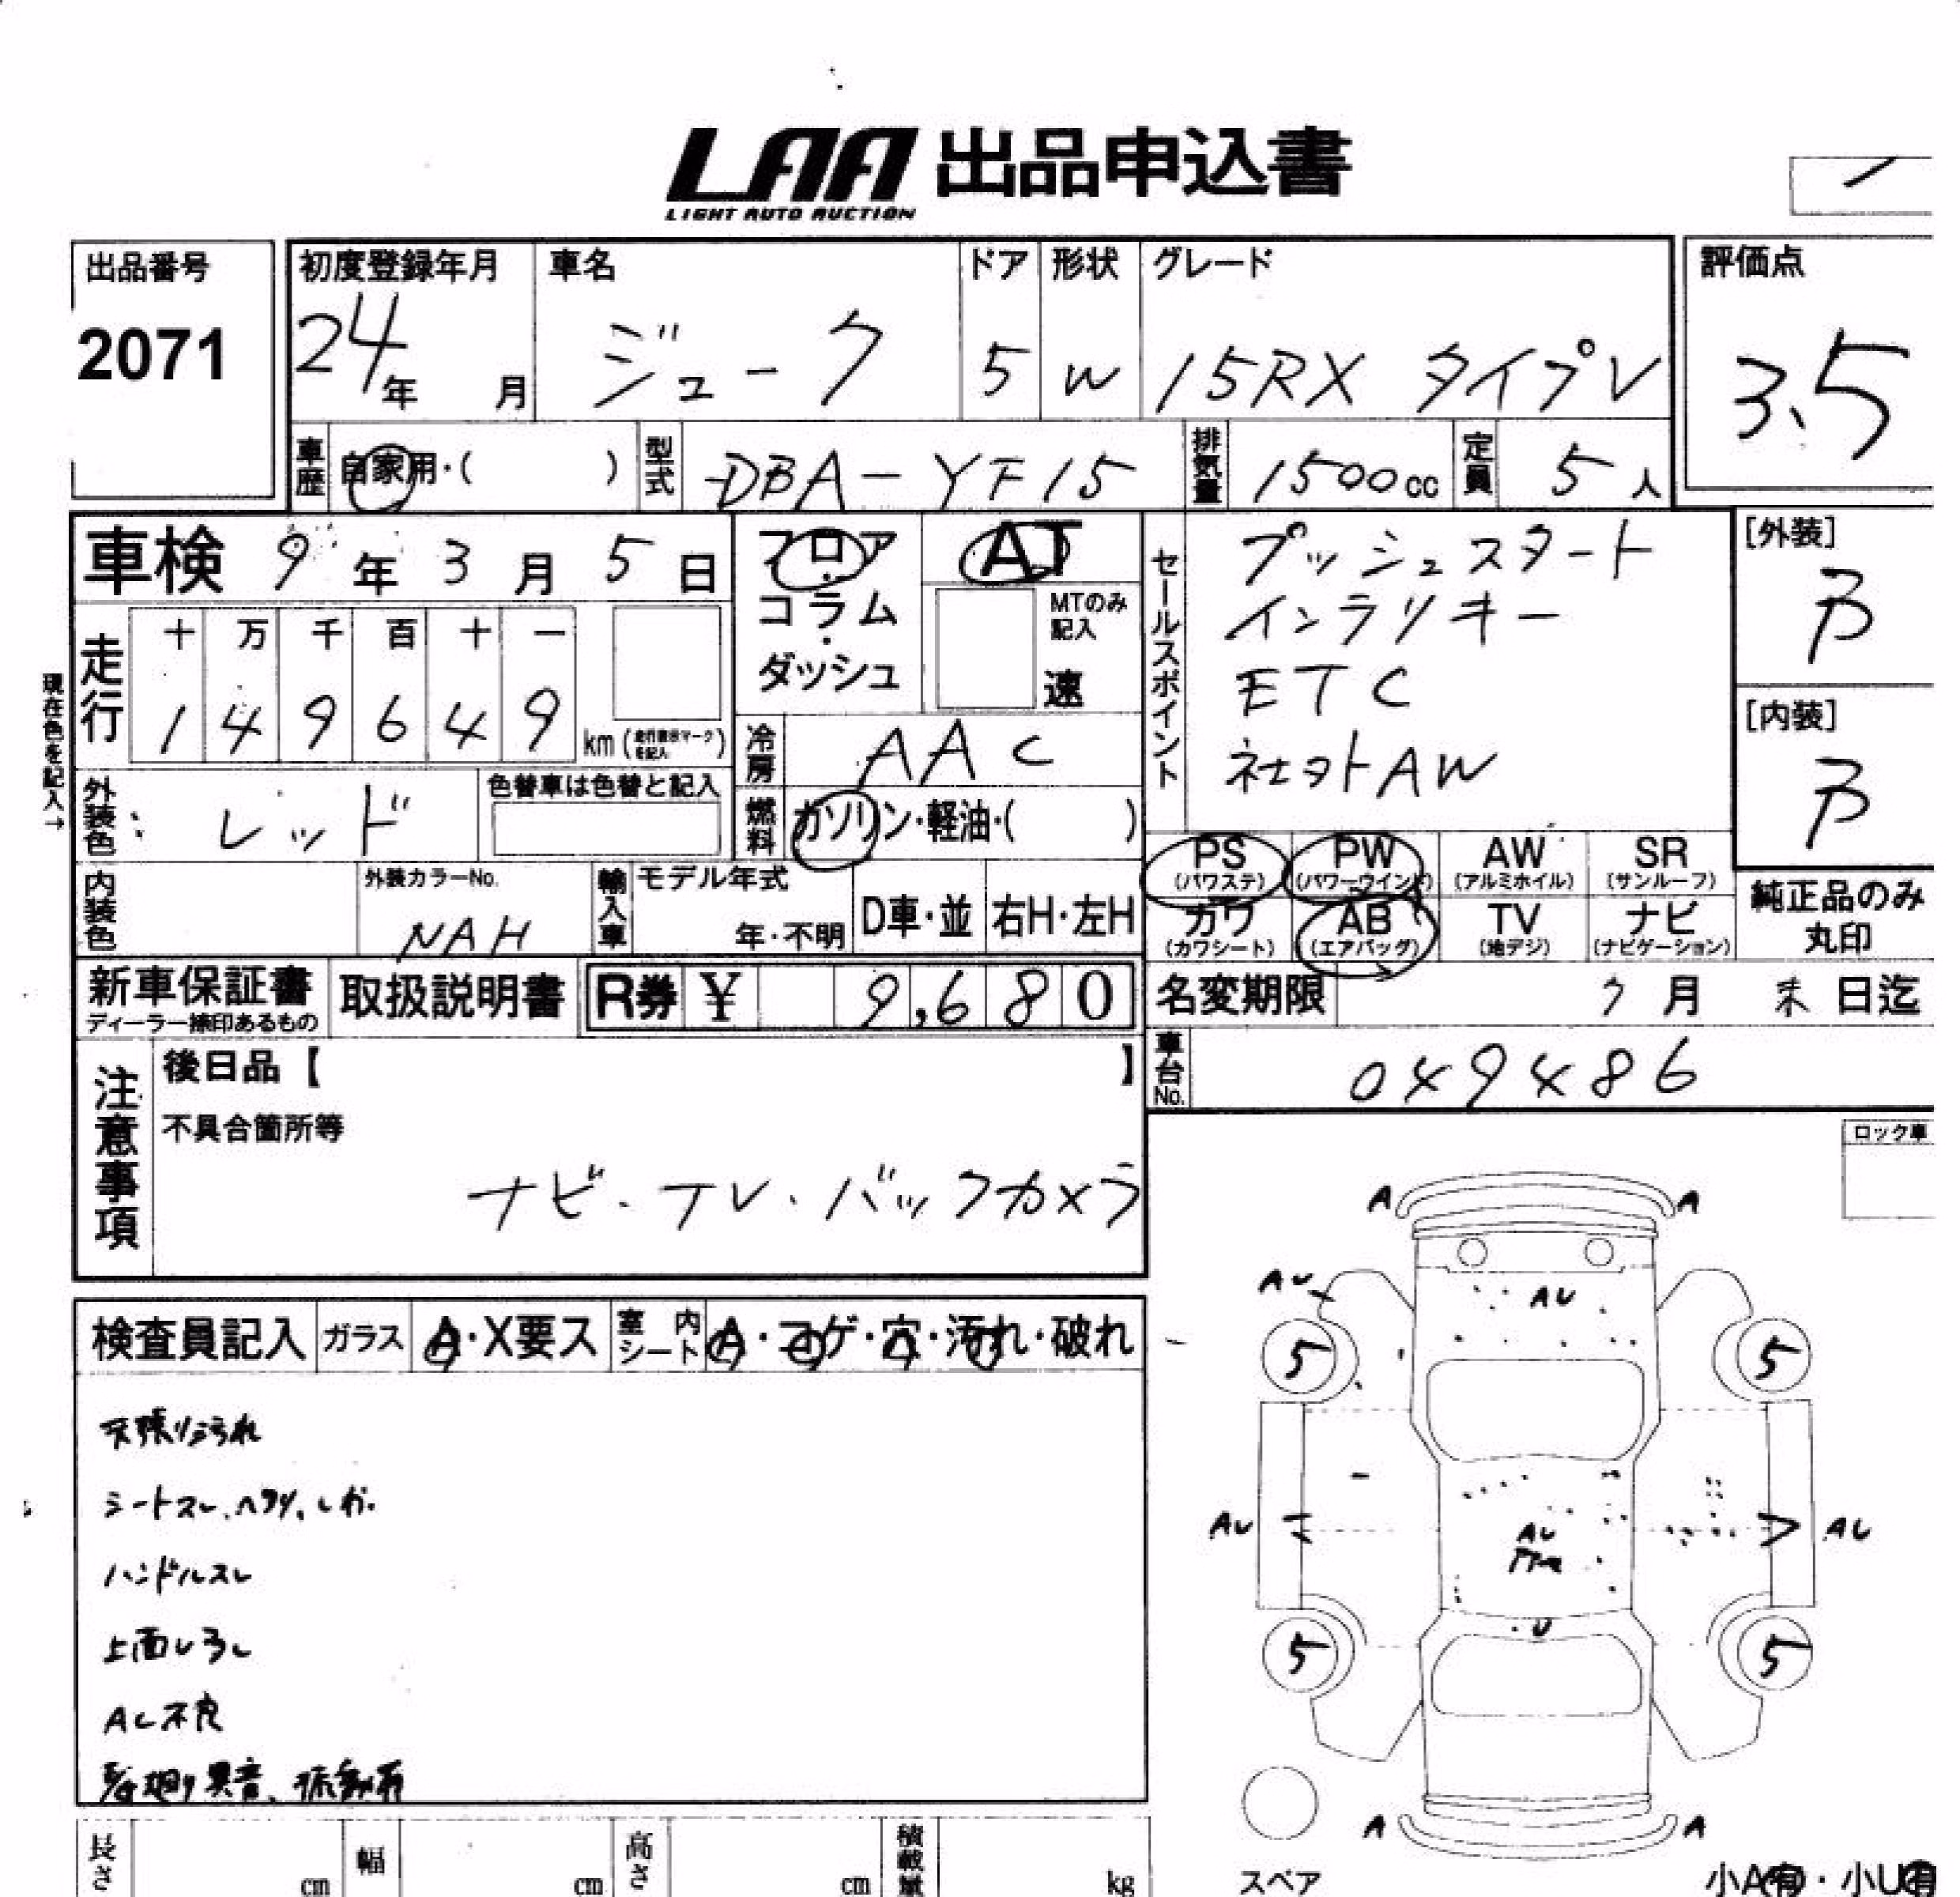 LAA 出品申込書
LIGHT AUTO AUCTION
出品番号
2071
初度登録年月
24年 月
車名
ジューク
ドア
5
形状
W
グレード
15RX タイプV
評価点
3.5
車歴 自家用・( )
型式 DBA-YF15
排気量 1500cc
定員 5人
車検 9年3月5日
フロア・コラム・ダッシュ
AT
MTのみ記入
速
セールスポイント
プッシュスタート
インテリキー
ETC
社外AW
[外装]
B
[内装]
B
現在色を記入→
走行
十 万 千 百 十 一
1 4 9 6 4 9 km
冷房 AAC
外装色 レッド
色替車は色替と記入
燃料 ガソリン・軽油・( )
PS (パワステ)
PW (パワーウインド)
AW (アルミホイル)
SR (サンルーフ)
カワ (カワシート)
AB (エアバッグ)
TV (地デジ)
ナビ (ナビゲーション)
純正品のみ丸印
内装色
外装カラーNo.
NAH
輸入車
モデル年式
年・不明
D車・並
右H・左H
新車保証書
ディーラー捺印あるもの
取扱説明書
R券 ¥ 9,680
名変期限 月 末日迄
車台No. 049486
注意事項
後日品【 】
不具合箇所等
ナビ・TV・バックカメラ
ロック車
A A
AU AU
5 5
AU AU AU
U
5 5
A A
スペア
小A有・小U有
検査員記入
ガラス A・X要ス
室内シート A・コゲ・穴・汚れ・破れ
天張り汚れ
シートスレ、ヘタリ、しわ.
ハンドルスレ
上面しろし
AC不良
異音、振動有
長さ cm
幅 cm
高さ cm
積載量 kg